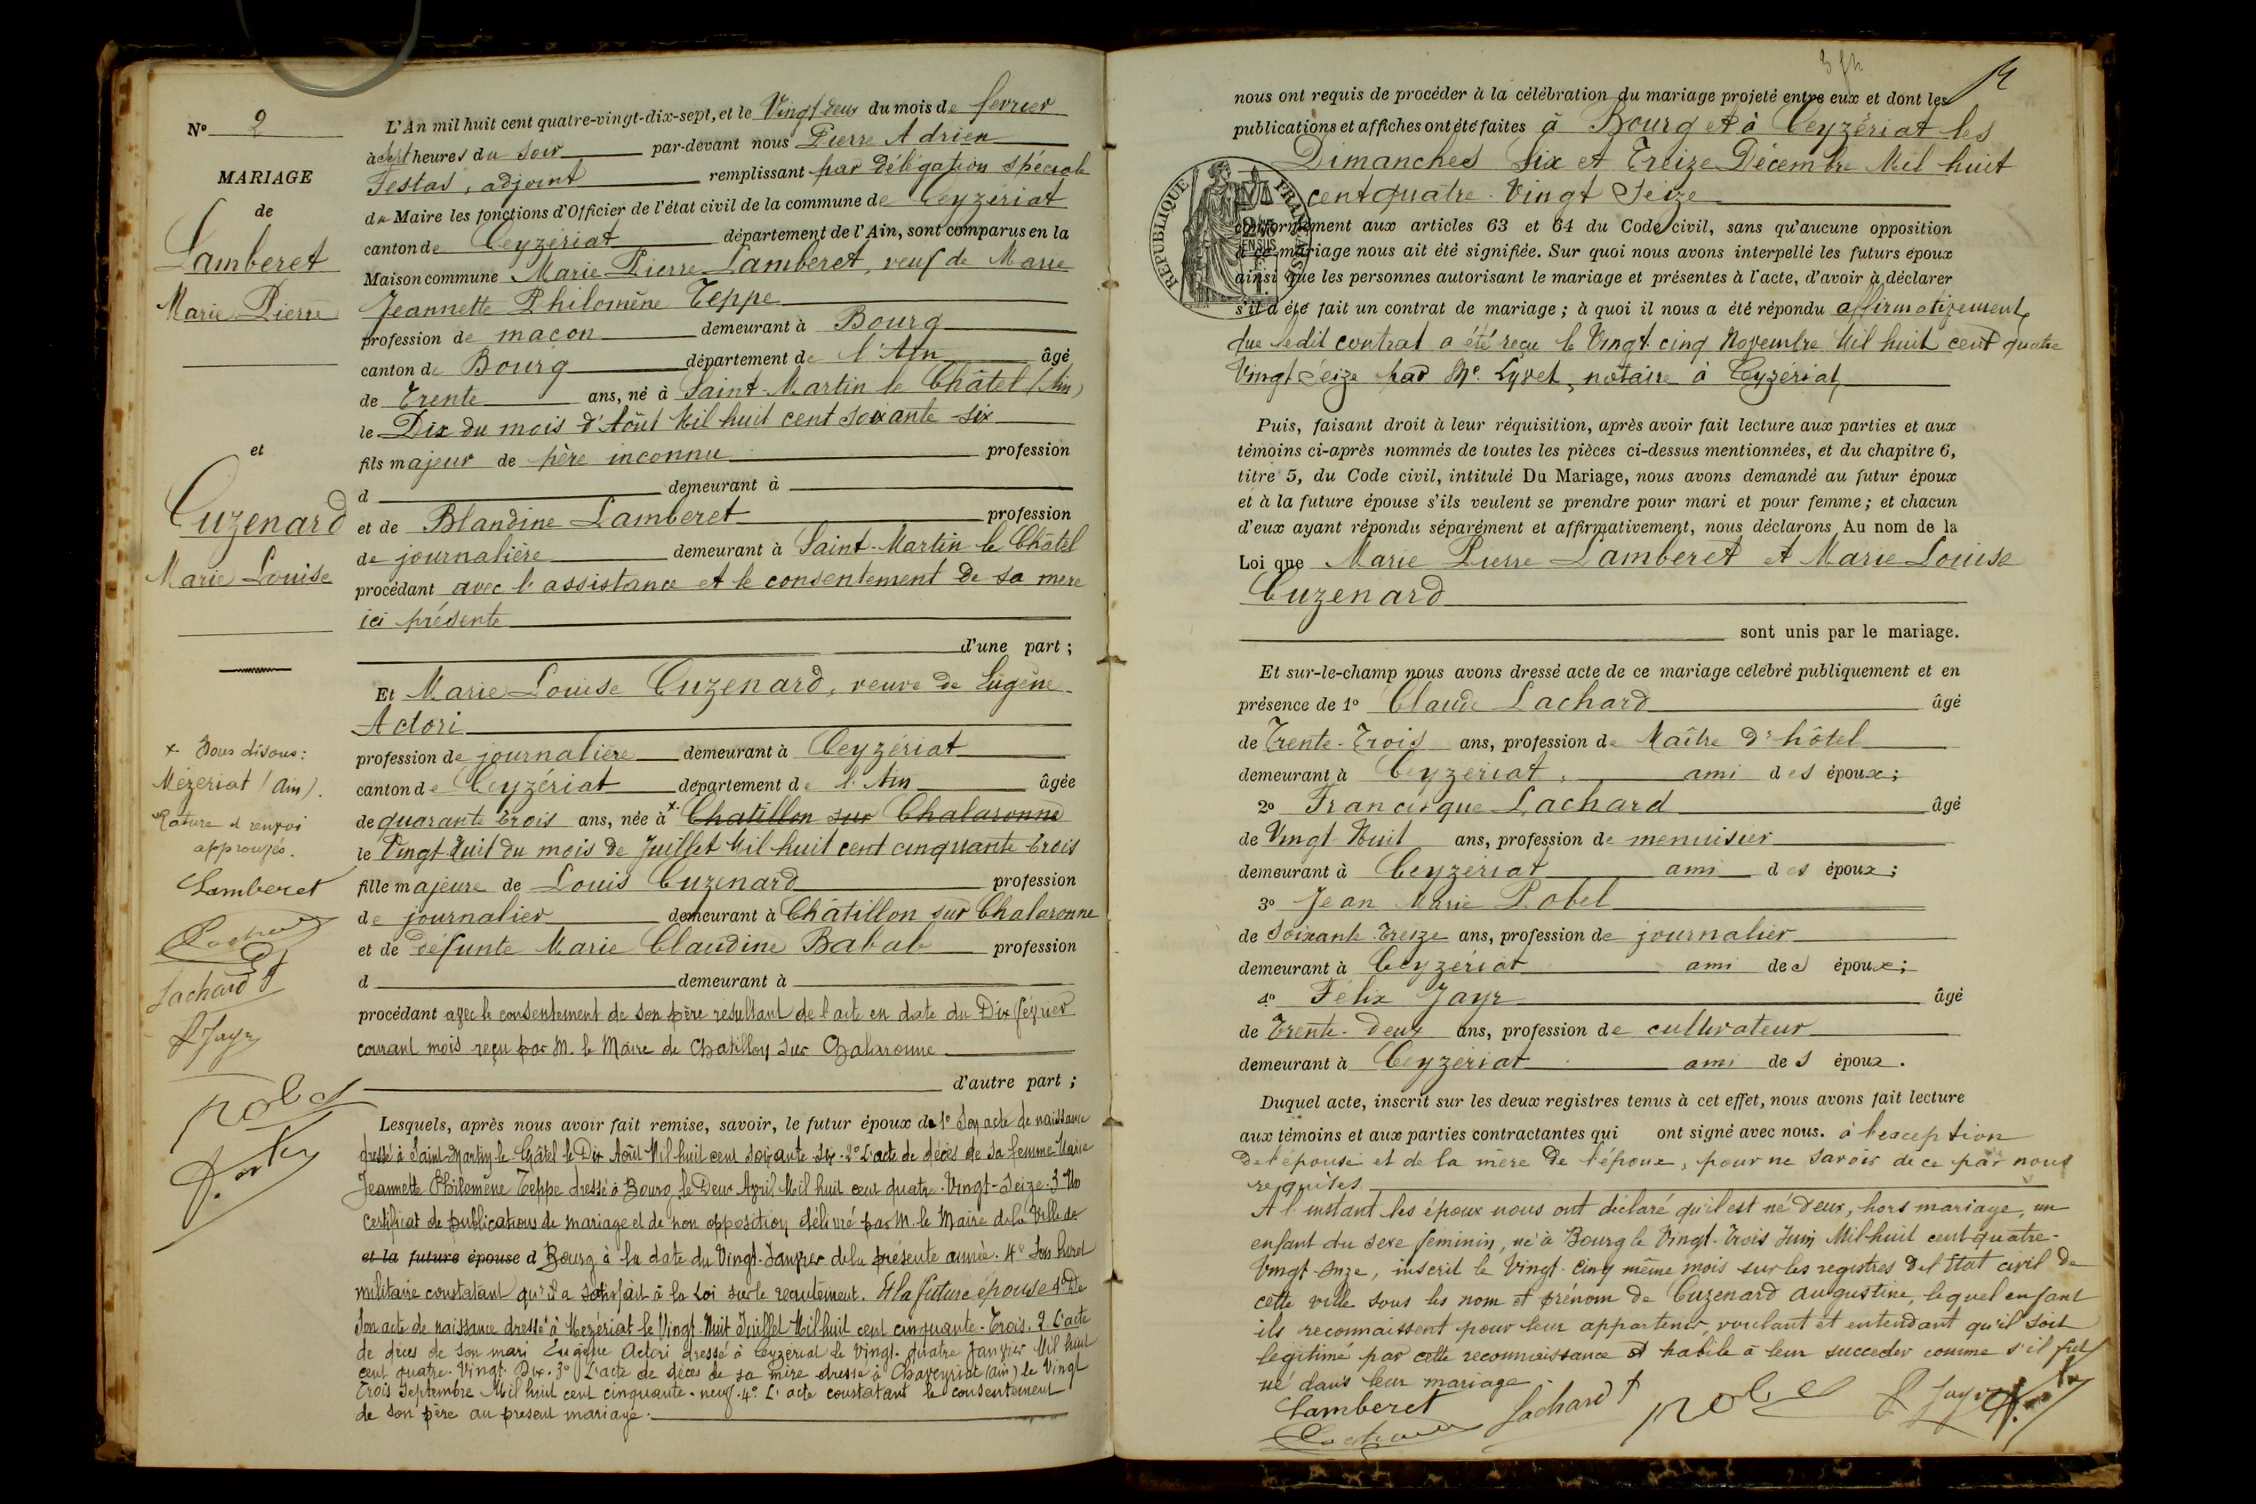 N° 2
MARIAGE
de
Lamberet
Marie Pierre
et
Cuzenard
Marie Louise
+ Nous disons:
Mézériat (Ain).
Rature et renvoi
approuvés.
Lamberet
Lachard
Lachard f
F Jayr
Robel
L'An mil huit cent quatre-vingt-dix-sept, et le Vingt deux du mois de février
à sept heures du soir par-devant nous Pierre Adrien
Festas, adjoint remplissant par délégation spéciale
du Maire les fonctions d'Officier de l'état civil de la commune de Ceyzériat
canton de Ceyzériat département de l'Ain, sont comparus en la
Maison commune Marie Pierre Lamberet, veuf de Marie
Jeannette Philomène Teppe
profession de maçon demeurant à Bourg
canton de Bourg département de l'Ain âgé
de Trente ans, né à Saint-Martin le Châtel (Ain)
le Dix du mois d'Août Mil huit cent soixante-six
fils majeur de père inconnu profession
d demeurant à
et de Blandine Lamberet profession
de journalière demeurant à Saint-Martin le Châtel
procédant avec l'assistance et le consentement de sa mère
ici présente
d'une part ;
Et Marie Louise Cuzenard, veuve de Eugène
Actori
profession de journalière demeurant à Ceyzériat
canton de Ceyzériat département de l'Ain âgée
de quarante trois ans, née à + Chatillon sur Chalaronne
le Vingt huit du mois de Juillet Mil huit cent cinquante trois
fille majeure de Louis Cuzenard profession
de journalier demeurant à Châtillon sur Chalaronne
et de défunte Marie Claudine Babab profession
d demeurant à
procédant avec le consentement de son père résultant de l'acte en date du Dix février
courant mois reçu par M. le Maire de Chatillon sur Chalaronne
d'autre part ;
Lesquels, après nous avoir fait remise, savoir, le futur époux de 1° Son acte de naissance
dressé à Saint-Martin le Châtel le Dix Août Mil huit cent soixante-six. 2° L'acte de décès de sa femme Marie
Jeannette Philomène Teppe dressé à Bourg le Deux Avril Mil huit cent quatre-Vingt-Seize. 3° Un
certificat de publications de mariage et de non opposition délivré par M. le Maire de la Ville de
et la future épouse d Bourg à la date du Vingt-Janvier de la présente année. 4° Son livret
militaire constatant qu'il a satisfait à la Loi sur le recrutement. Et la future épouse 1° de
Son acte de naissance dressé à Mezériat le Vingt-Huit Juillet Mil huit cent cinquante-Trois. 2° L'acte
de décès de son mari Eugène Actori dressé à Ceyzériat le Vingt-quatre Janvier Mil huit
cent quatre-Vingt-Dix. 3° L'acte de décès de sa mère dressé à Chaveyriat (Ain) le Vingt
Trois Septembre Mil huit cent cinquante-neuf. 4° L'acte constatant le consentement
de son père au présent mariage.
nous ont requis de procéder à la célébration du mariage projeté entre eux et dont les
publications et affiches ont été faites à Bourg et à Ceyzériat les
Dimanches Six et Treize Décembre Mil huit
cent quatre-Vingt Seize
REPUBLIQUE FRANÇAISE
conformément aux articles 63 et 64 du Code civil, sans qu'aucune opposition
à ce mariage nous ait été signifiée. Sur quoi nous avons interpellé les futurs époux
ainsi que les personnes autorisant le mariage et présentes à l'acte, d'avoir à déclarer
s'il a été fait un contrat de mariage ; à quoi il nous a été répondu affirmativement
que ledit contrat a été reçu le Vingt cinq Novembre Mil huit cent quatre
Vingt Seize par Me. Lyvet, notaire à Ceyzériat
Puis, faisant droit à leur réquisition, après avoir fait lecture aux parties et aux
témoins ci-après nommés de toutes les pièces ci-dessus mentionnées, et du chapitre 6,
titre 5, du Code civil, intitulé Du Mariage, nous avons demandé au futur époux
et à la future épouse s'ils veulent se prendre pour mari et pour femme ; et chacun
d'eux ayant répondu séparément et affirmativement, nous déclarons Au nom de la
Loi que Marie Pierre Lamberet et Marie Louise
Cuzenard
sont unis par le mariage.
Et sur-le-champ nous avons dressé acte de ce mariage célébré publiquement et en
présence de 1° Claude Lachard âgé
de Trente-Trois ans, profession de Maître d'hôtel
demeurant à Ceyzériat, ami des époux ;
2° Francisque Lachard âgé
de Vingt-Huit ans, profession de menuisier
demeurant à Ceyzériat ami des époux ;
3° Jean Marie Robel
de Soixante-Treize ans, profession de journalier
demeurant à Ceyzériat ami des époux ;
4° Félix Jayr âgé
de Trente-Deux ans, profession de cultivateur
demeurant à Ceyzériat ami des époux.
Duquel acte, inscrit sur les deux registres tenus à cet effet, nous avons fait lecture
aux témoins et aux parties contractantes qui ont signé avec nous. à l'exception
de l'épouse et de la mère de l'époux, pour ne savoir de ce par nous
requises
A l'instant les époux nous ont déclaré qu'il est né d'eux, hors mariage, un
enfant du sexe féminin, né à Bourg le Vingt-Trois Juin Mil huit cent quatre-
Vingt-Onze, inscrit le Vingt-Cinq même mois sur les registres de l'Etat civil de
cette ville sous les nom et prénom de Cuzenard Augustine, lequel enfant
ils reconnaissent pour leur appartenir, voulant et entendant qu'il soit
légitimé par cette reconnaissance et habile à leur succéder comme s'il fut
né dans leur mariage.
Lamberet Lachard f Robel F Jayr
Lachard